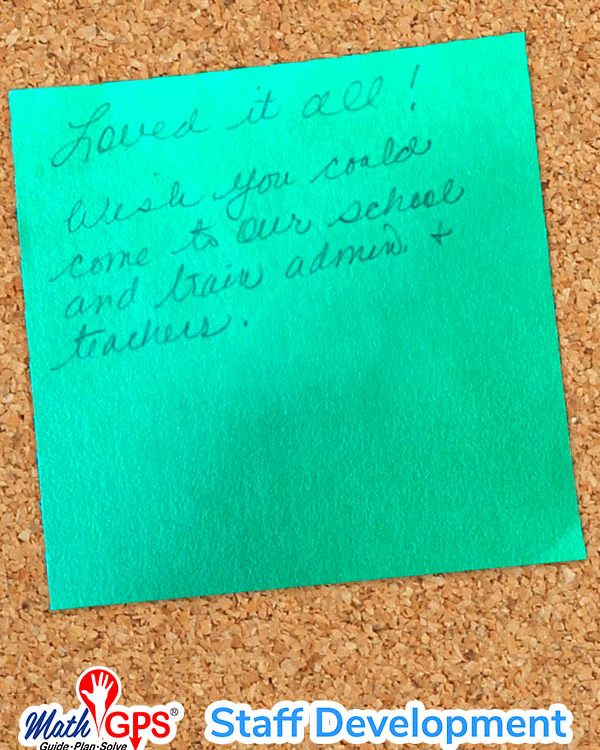 Loved it all!
Wish you could
come to our school
and train admin. +
teachers.
Math GPS®
Guide-Plan-Solve
Staff Development